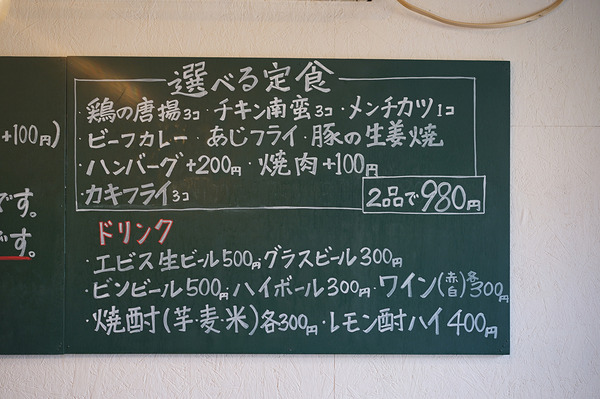 選べる定食
・鶏の唐揚3コ・チキン南蛮3コ・メンチカツ1コ
・ビーフカレー・あじフライ・豚の生姜焼
・ハンバーグ+200円・焼肉+100円
・カキフライ3コ
2品で980円
ドリンク
・エビス生ビール500円・グラスビール300円
・ビンビール500円・ハイボール300円・ワイン(赤白)各300円
・焼酎(芋・麦・米)各300円・レモン酎ハイ400円
+100円)
です。
です。